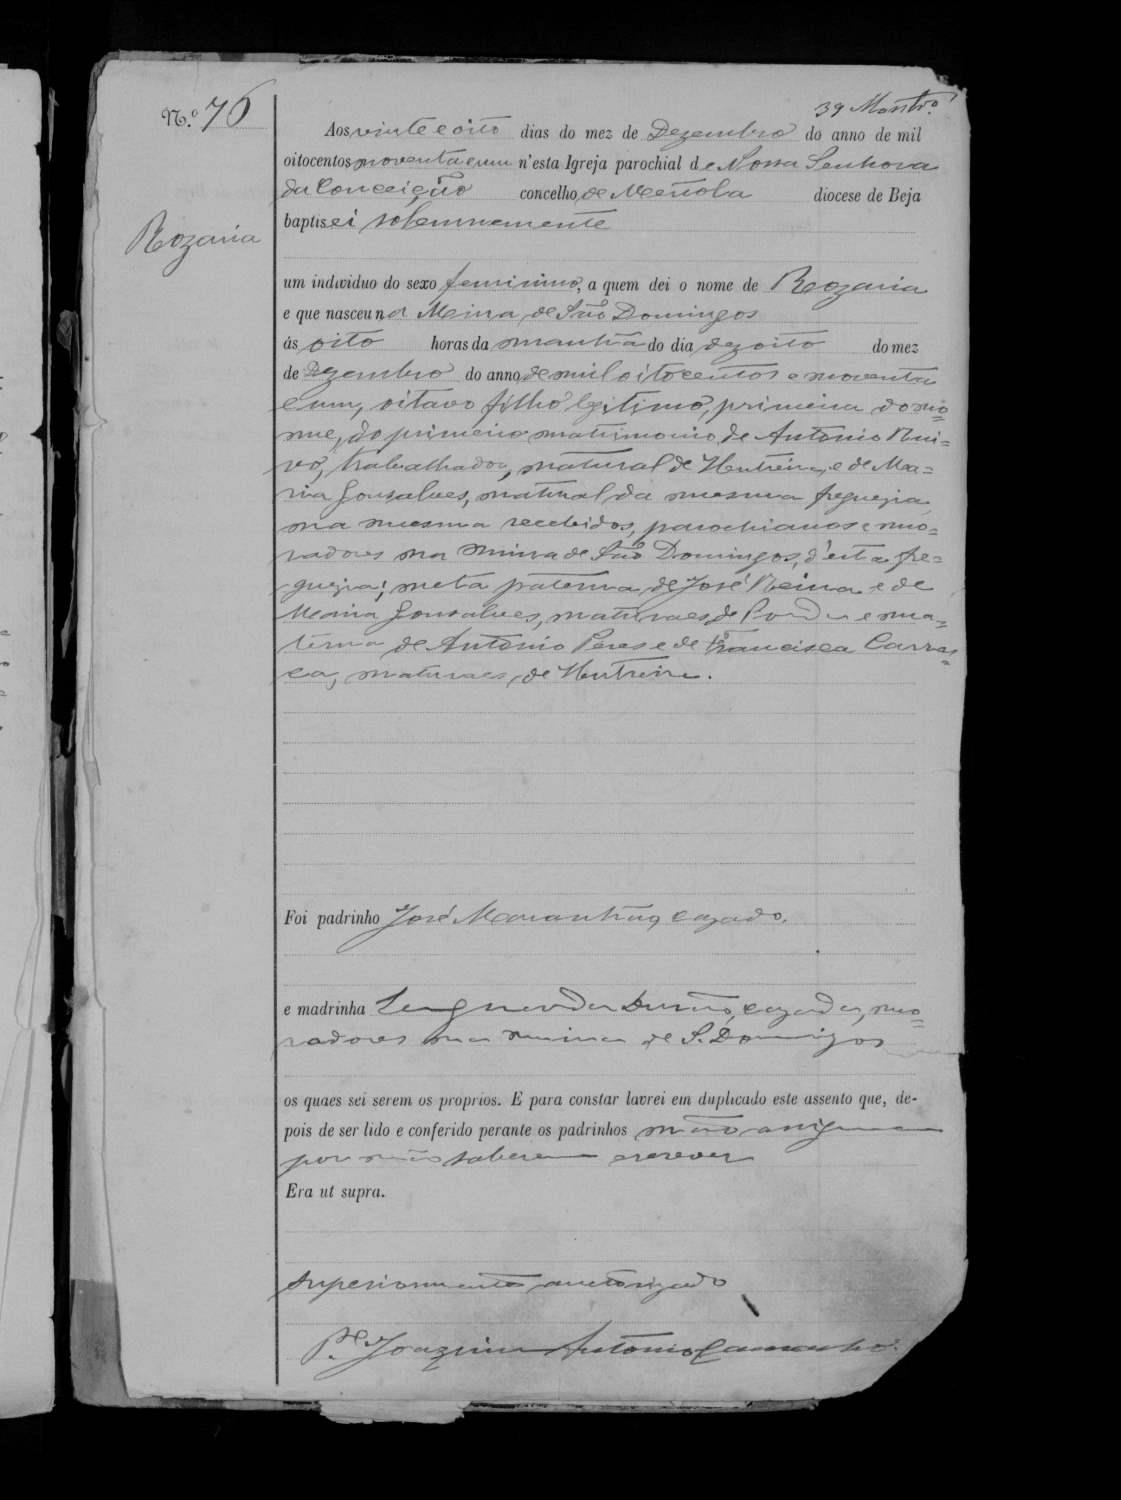 39 Montro.
N.º 76
Aos vinte e oito dias do mez de Dezembro do anno de mil
oitocentos noventa e um n'esta Igreja parochial de Nossa Senhora
da Conceição concelho de Mertola diocese de Beja
baptisei solemnemente
Rozaria
um individuo do sexo feminino, a quem dei o nome de Rozaria
e que nasceu na Meina de São Domingos
ás oito horas da manhã do dia dezoito do mez
de Dezembro do anno de mil oitocentos e noventa
e um, oitavo filho legitimo, primeira do no=
me, do primeiro matrimonio de Antonio Rui=
vo, trabalhador, natural de e de Ma=
ria Gonsalves, natural da mesma freguezia
na mesma recebidos, parochianos e mo=
radores na mina de São Domingos, d'esta fre=
guezia; neta paterna de José Reina e de
Maria Gonsalves, naturaes de e ma=
terna de Antonio Peres e de Francisca Carras=
ca, naturaes de
Foi padrinho José Maranhão, cazado,
e madrinha cazada, mo=
radores na mina de S. Domingos
os quaes sei serem os proprios. E para constar lavrei em duplicado este assento que, de-
pois de ser lido e conferido perante os padrinhos não assignam
por não saberem escrever
Era ut supra.
Superiormente auctorizado
P.e Joaquim Antonio Camacho.